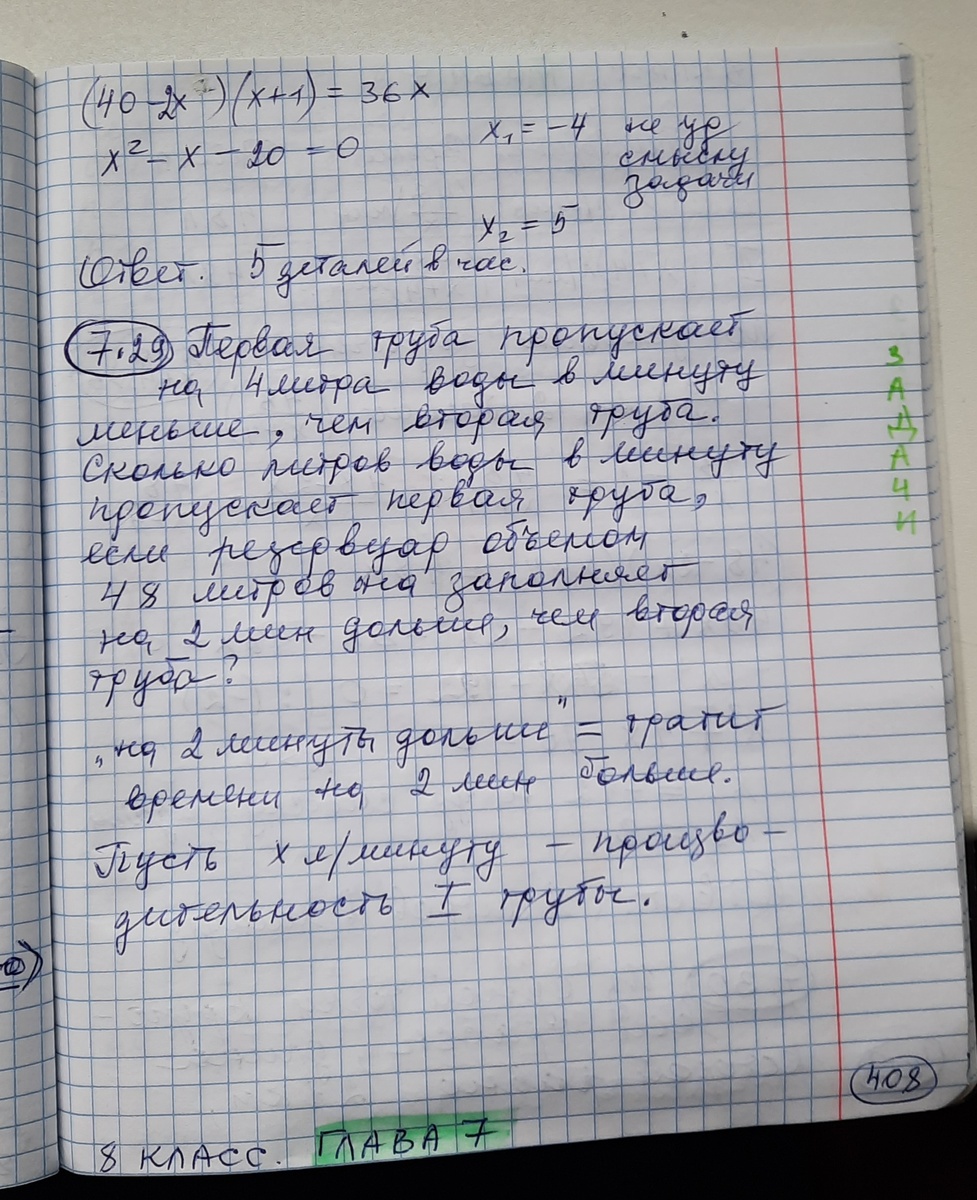 (40-2x)(x+1) = 36x
x² - x - 20 = 0
x₁ = -4 не уд
смыслу
задачи
x₂ = 5
Ответ. 5 деталей в час.
7.29 Первая труба пропускает
на 4 литра воды в минуту
меньше, чем вторая труба.
Сколько литров воды в минуту
пропускает первая труба,
если резервуар объемом
48 литров она заполняет
на 2 мин дольше, чем вторая
труба?
„на 2 минуты дольше" = тратит
времени на 2 мин больше.
Пусть x л/минуту - произво-
дительность I трубы.
ЗАДАЧИ
408
8 КЛАСС. ГЛАВА 7